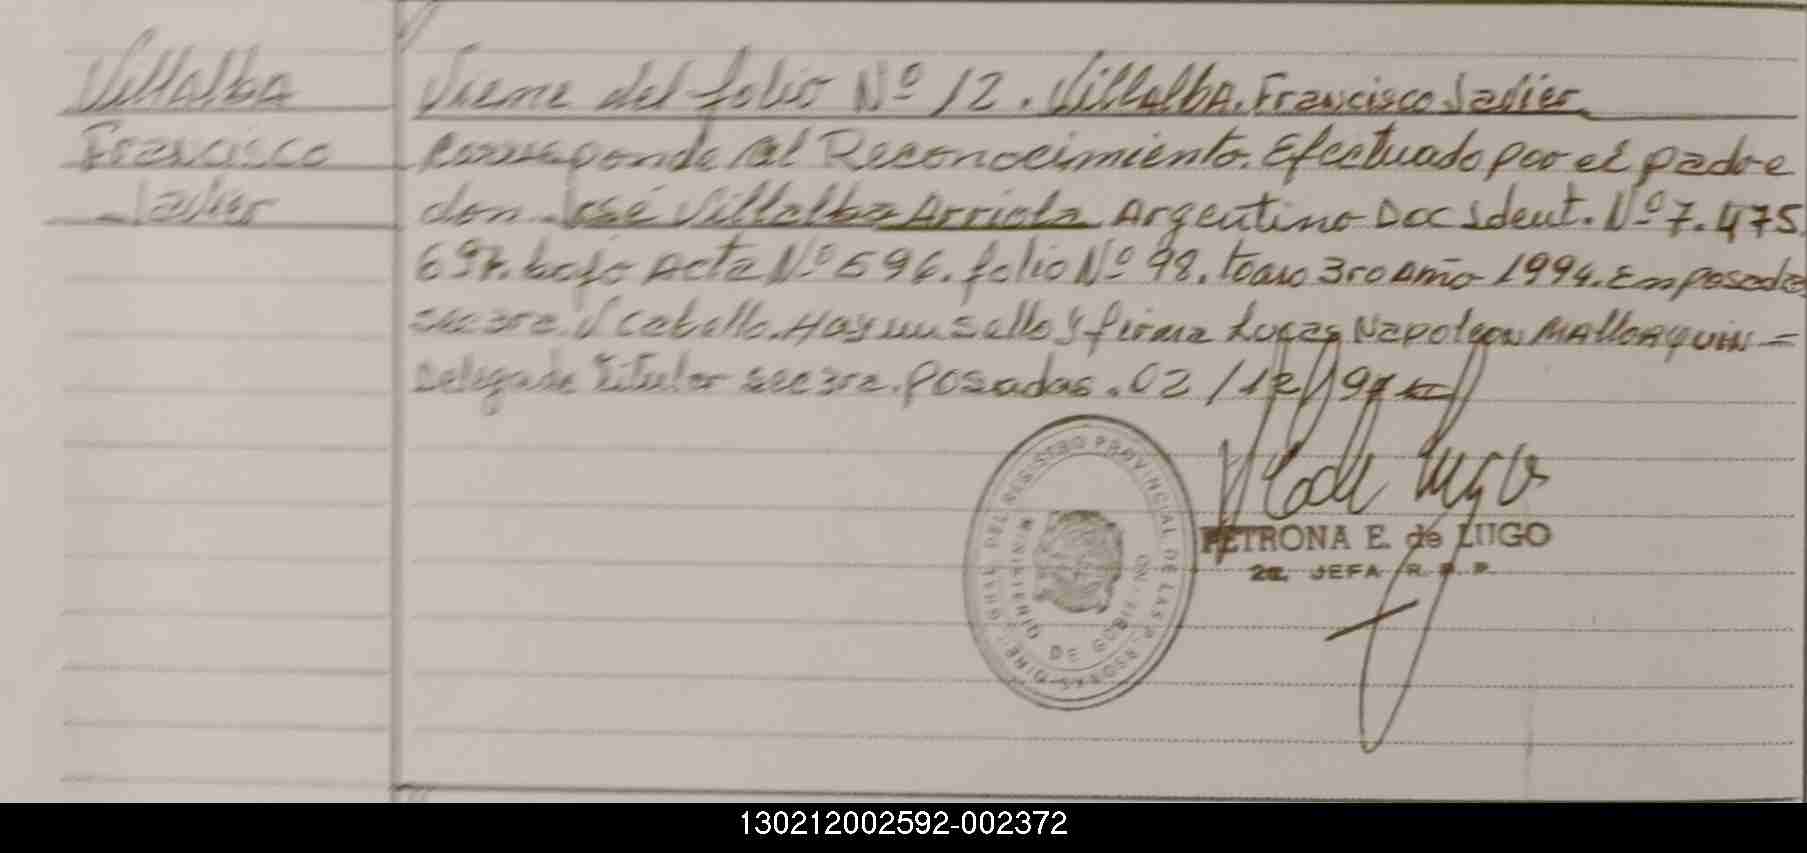 Villalba
Francisco
Javier
Viene del folio Nº 12. Villalba. Francisco Javier
corresponde al Reconocimiento. Efectuado por el padre
don José Villalba Arriola Argentino Doc Ident. Nº 7.475
697. bajo Acta Nº 596. folio Nº 98. tomo 3ro Año 1994. En posadas
sec 3ra. V cabello. Hay un sello y firma Lucas Napoleon MALLORQUIN =
Delegado titular sec 3ra. posadas. 02/12/94
REGISTRO PROVINCIAL DE LAS PERSONAS
MINISTERIO DE GOBIERNO
PETRONA E. de LUGO
2a. JEFA R. P. P.
130212002592-002372